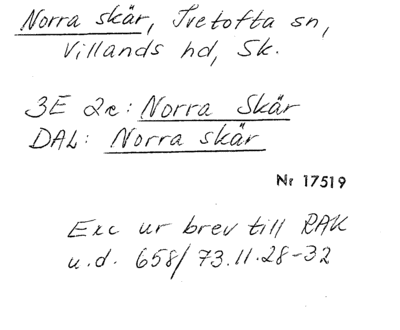 Norra skär, Ivetofta sn,
Villands hd, Sk.
3E 2e: Norra Skär
DAL: Norra skär
Nr 17519
Exc ur brev till RAK
u.d. 658/73.11.28-32